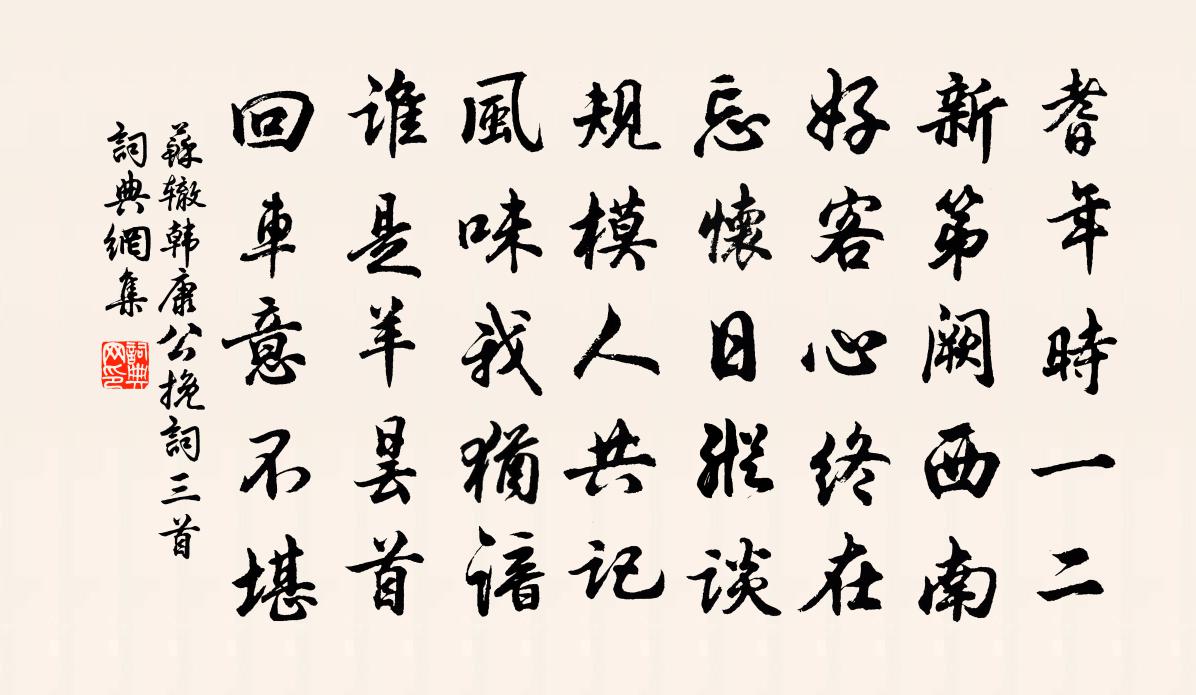 耆年時一二
新第闕西南
好客心終在
忘懷日縱談
規模人共記
風味我猶諳
誰是羊曇首
回車意不堪
蘇辙韩康公挽詞三首
詞典網集
詞典
网印